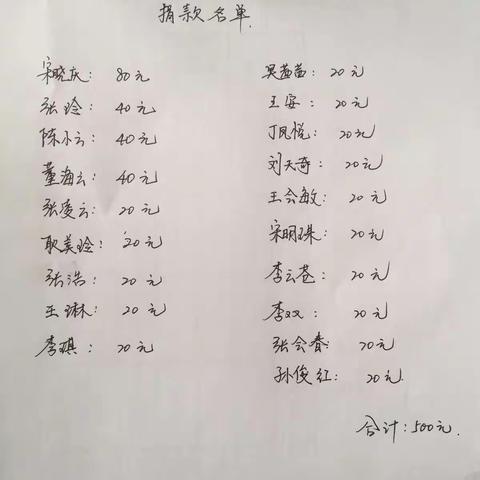 捐款名单
宋晓庆: 80元
张玲: 40元
陈小云: 40元
董海云: 40元
张凌云: 20元
耿美玲: 20元
张浩: 20元
王琳: 20元
李琪: 20元
吴茜茜: 20元
王安: 20元
丁凤悦: 20元
刘天奇: 20元
王会敏: 20元
宋明珠: 20元
李云苍: 20元
李双: 20元
张会春: 20元
孙俊红: 20元
合计: 500元.